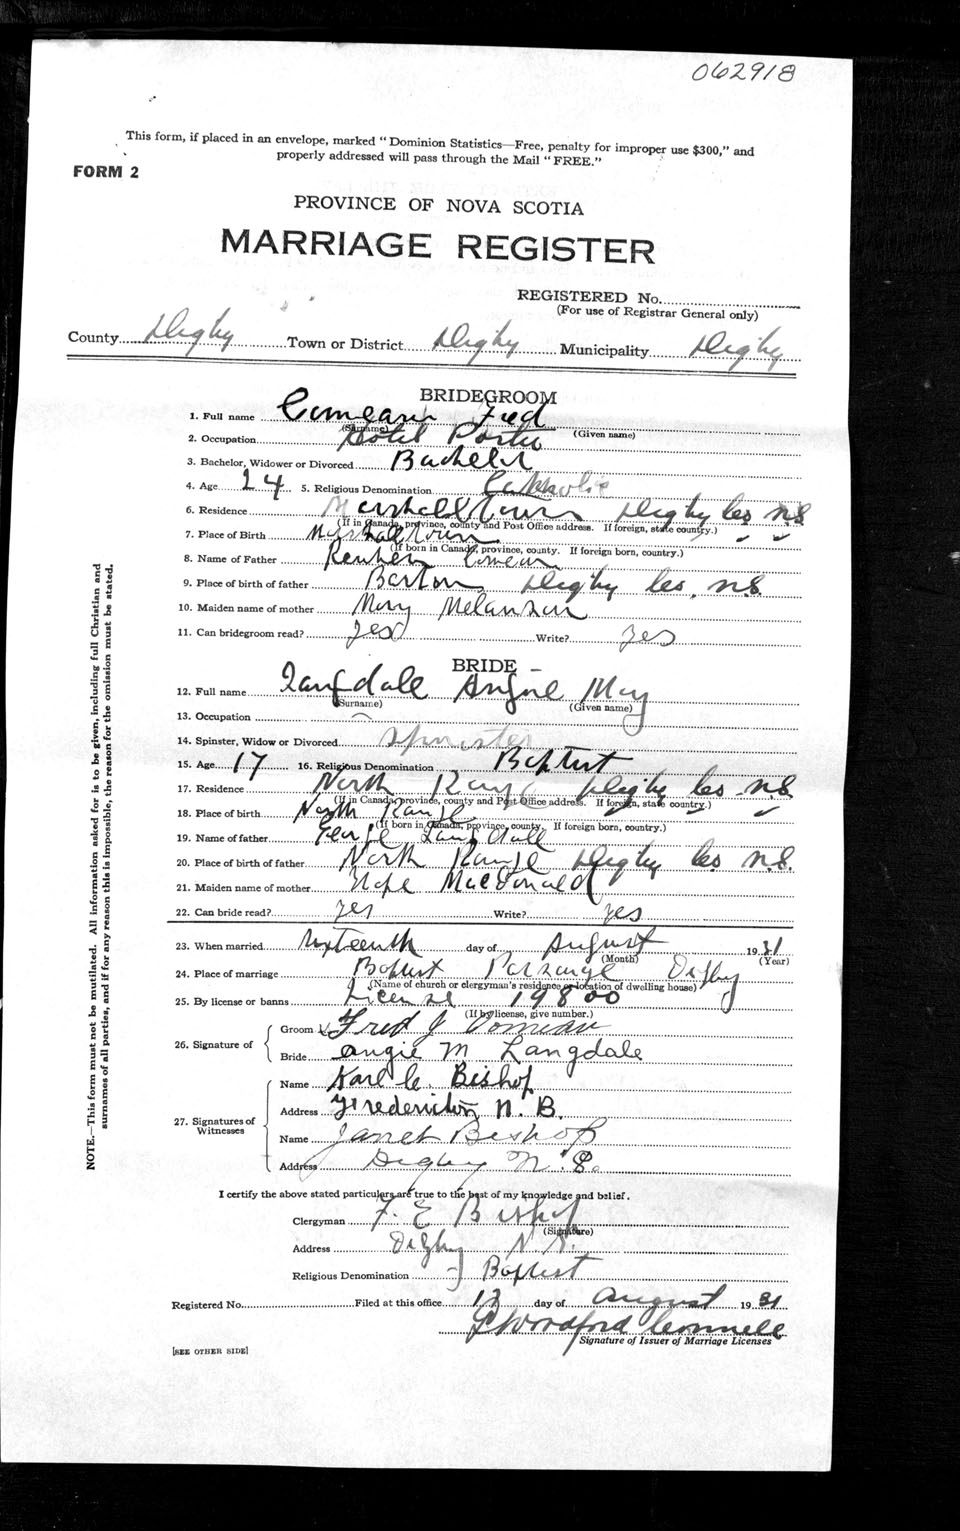 062918
This form, if placed in an envelope, marked "Dominion Statistics—Free, penalty for improper use $300," and
properly addressed will pass through the Mail "FREE."
FORM 2
PROVINCE OF NOVA SCOTIA
MARRIAGE REGISTER
REGISTERED No.
(For use of Registrar General only)
County Digby Town or District Digby Municipality Digby
BRIDEGROOM
1. Full name Comeau Fred
(Surname) (Given name)
2. Occupation Hotel Porter
3. Bachelor, Widower or Divorced Bachelor
4. Age 24 5. Religious Denomination Catholic
6. Residence Marshalltown Digby Co N.S.
(If in Canada, province, county and Post Office address. If foreign, state country.)
7. Place of Birth Marshalltown " "
(If born in Canada, province, county. If foreign born, country.)
8. Name of Father Reuben Comeau
9. Place of birth of father Barton Digby Co. N.S.
10. Maiden name of mother Mary Melanson
11. Can bridegroom read? Yes Write? Yes
BRIDE
12. Full name Langdale Angie May
(Surname) (Given name)
13. Occupation —
14. Spinster, Widow or Divorced Spinster
15. Age 17 16. Religious Denomination Baptist
17. Residence North Range Digby Co. N.S.
(If in Canada, province, county and Post Office address. If foreign, state country.)
18. Place of birth North Range " " "
(If born in Canada, province, county. If foreign born, country.)
19. Name of father George Langdale
20. Place of birth of father North Range Digby Co N.S.
21. Maiden name of mother Hope MacDonald
22. Can bride read? Yes Write? Yes
23. When married Sixteenth day of August 1931
(Month) (Year)
24. Place of marriage Baptist Parsonage Digby
(Name of church or clergyman's residence or location of dwelling house)
25. By license or banns License 19800
(If by license, give number.)
26. Signature of
Groom x Fred J Comeau
Bride Angie M Langdale
27. Signatures of Witnesses
Name Karl C. Bishop
Address Fredericton N. B.
Name Janet Bishop
Address Digby N. S.
I certify the above stated particulars are true to the best of my knowledge and belief.
Clergyman F. E. Bishop
(Signature)
Address Digby N.S.
Religious Denomination Baptist
Registered No. Filed at this office day of August 1931
Woodford Connell
Signature of Issuer of Marriage Licenses
[SEE OTHER SIDE]
NOTE.—This form must not be mutilated. All information asked for is to be given, including full Christian and
surnames of all parties, and if for any reason this is impossible, the reason for the omission must be stated.